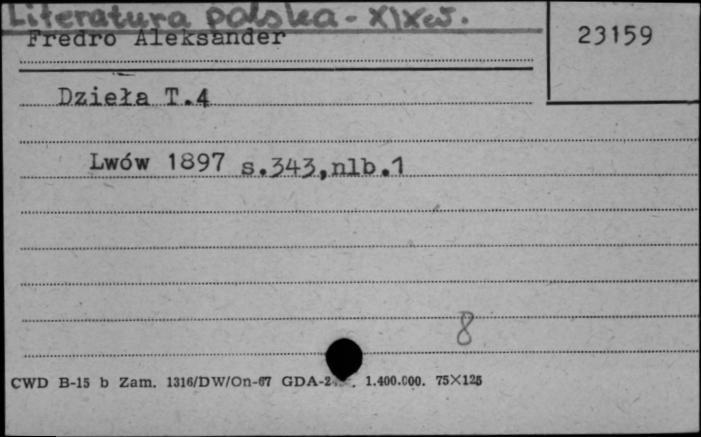 Literatura polska - XIX w.
Fredro Aleksander
23159
Dzieła T.4
Lwów 1897 s.343,nlb.1
8
CWD B-15 b Zam. 1316/DW/On-67 GDA-2 . 1.400.000. 75×125